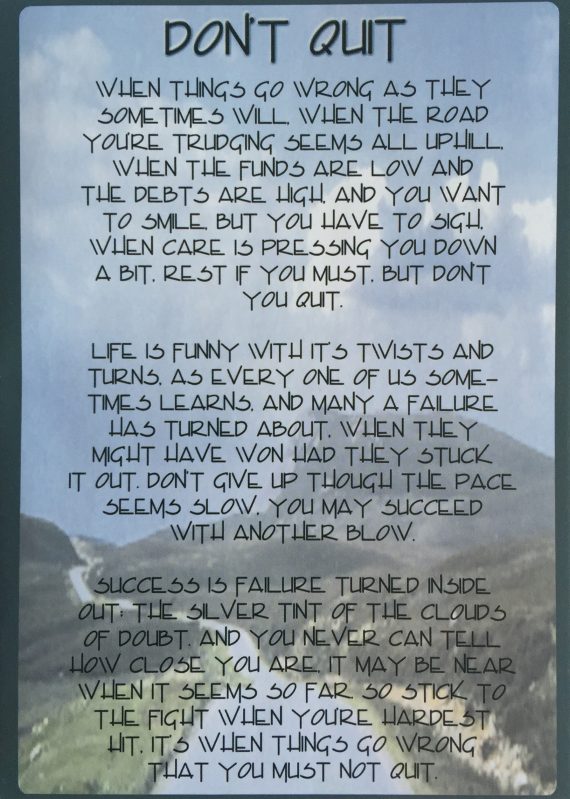 DON'T QUIT
WHEN THINGS GO WRONG AS THEY
SOMETIMES WILL, WHEN THE ROAD
YOU'RE TRUDGING SEEMS ALL UPHILL,
WHEN THE FUNDS ARE LOW AND
THE DEBTS ARE HIGH, AND YOU WANT
TO SMILE, BUT YOU HAVE TO SIGH,
WHEN CARE IS PRESSING YOU DOWN
A BIT, REST IF YOU MUST, BUT DON'T
YOU QUIT.
LIFE IS FUNNY WITH IT'S TWISTS AND
TURNS, AS EVERY ONE OF US SOME-
TIMES LEARNS, AND MANY A FAILURE
HAS TURNED ABOUT, WHEN THEY
MIGHT HAVE WON HAD THEY STUCK
IT OUT. DON'T GIVE UP THOUGH THE PACE
SEEMS SLOW, YOU MAY SUCCEED
WITH ANOTHER BLOW.
SUCCESS IS FAILURE TURNED INSIDE
OUT; THE SILVER TINT OF THE CLOUDS
OF DOUBT. AND YOU NEVER CAN TELL
HOW CLOSE YOU ARE, IT MAY BE NEAR
WHEN IT SEEMS SO FAR SO STICK TO
THE FIGHT WHEN YOU'RE HARDEST
HIT, IT'S WHEN THINGS GO WRONG
THAT YOU MUST NOT QUIT.